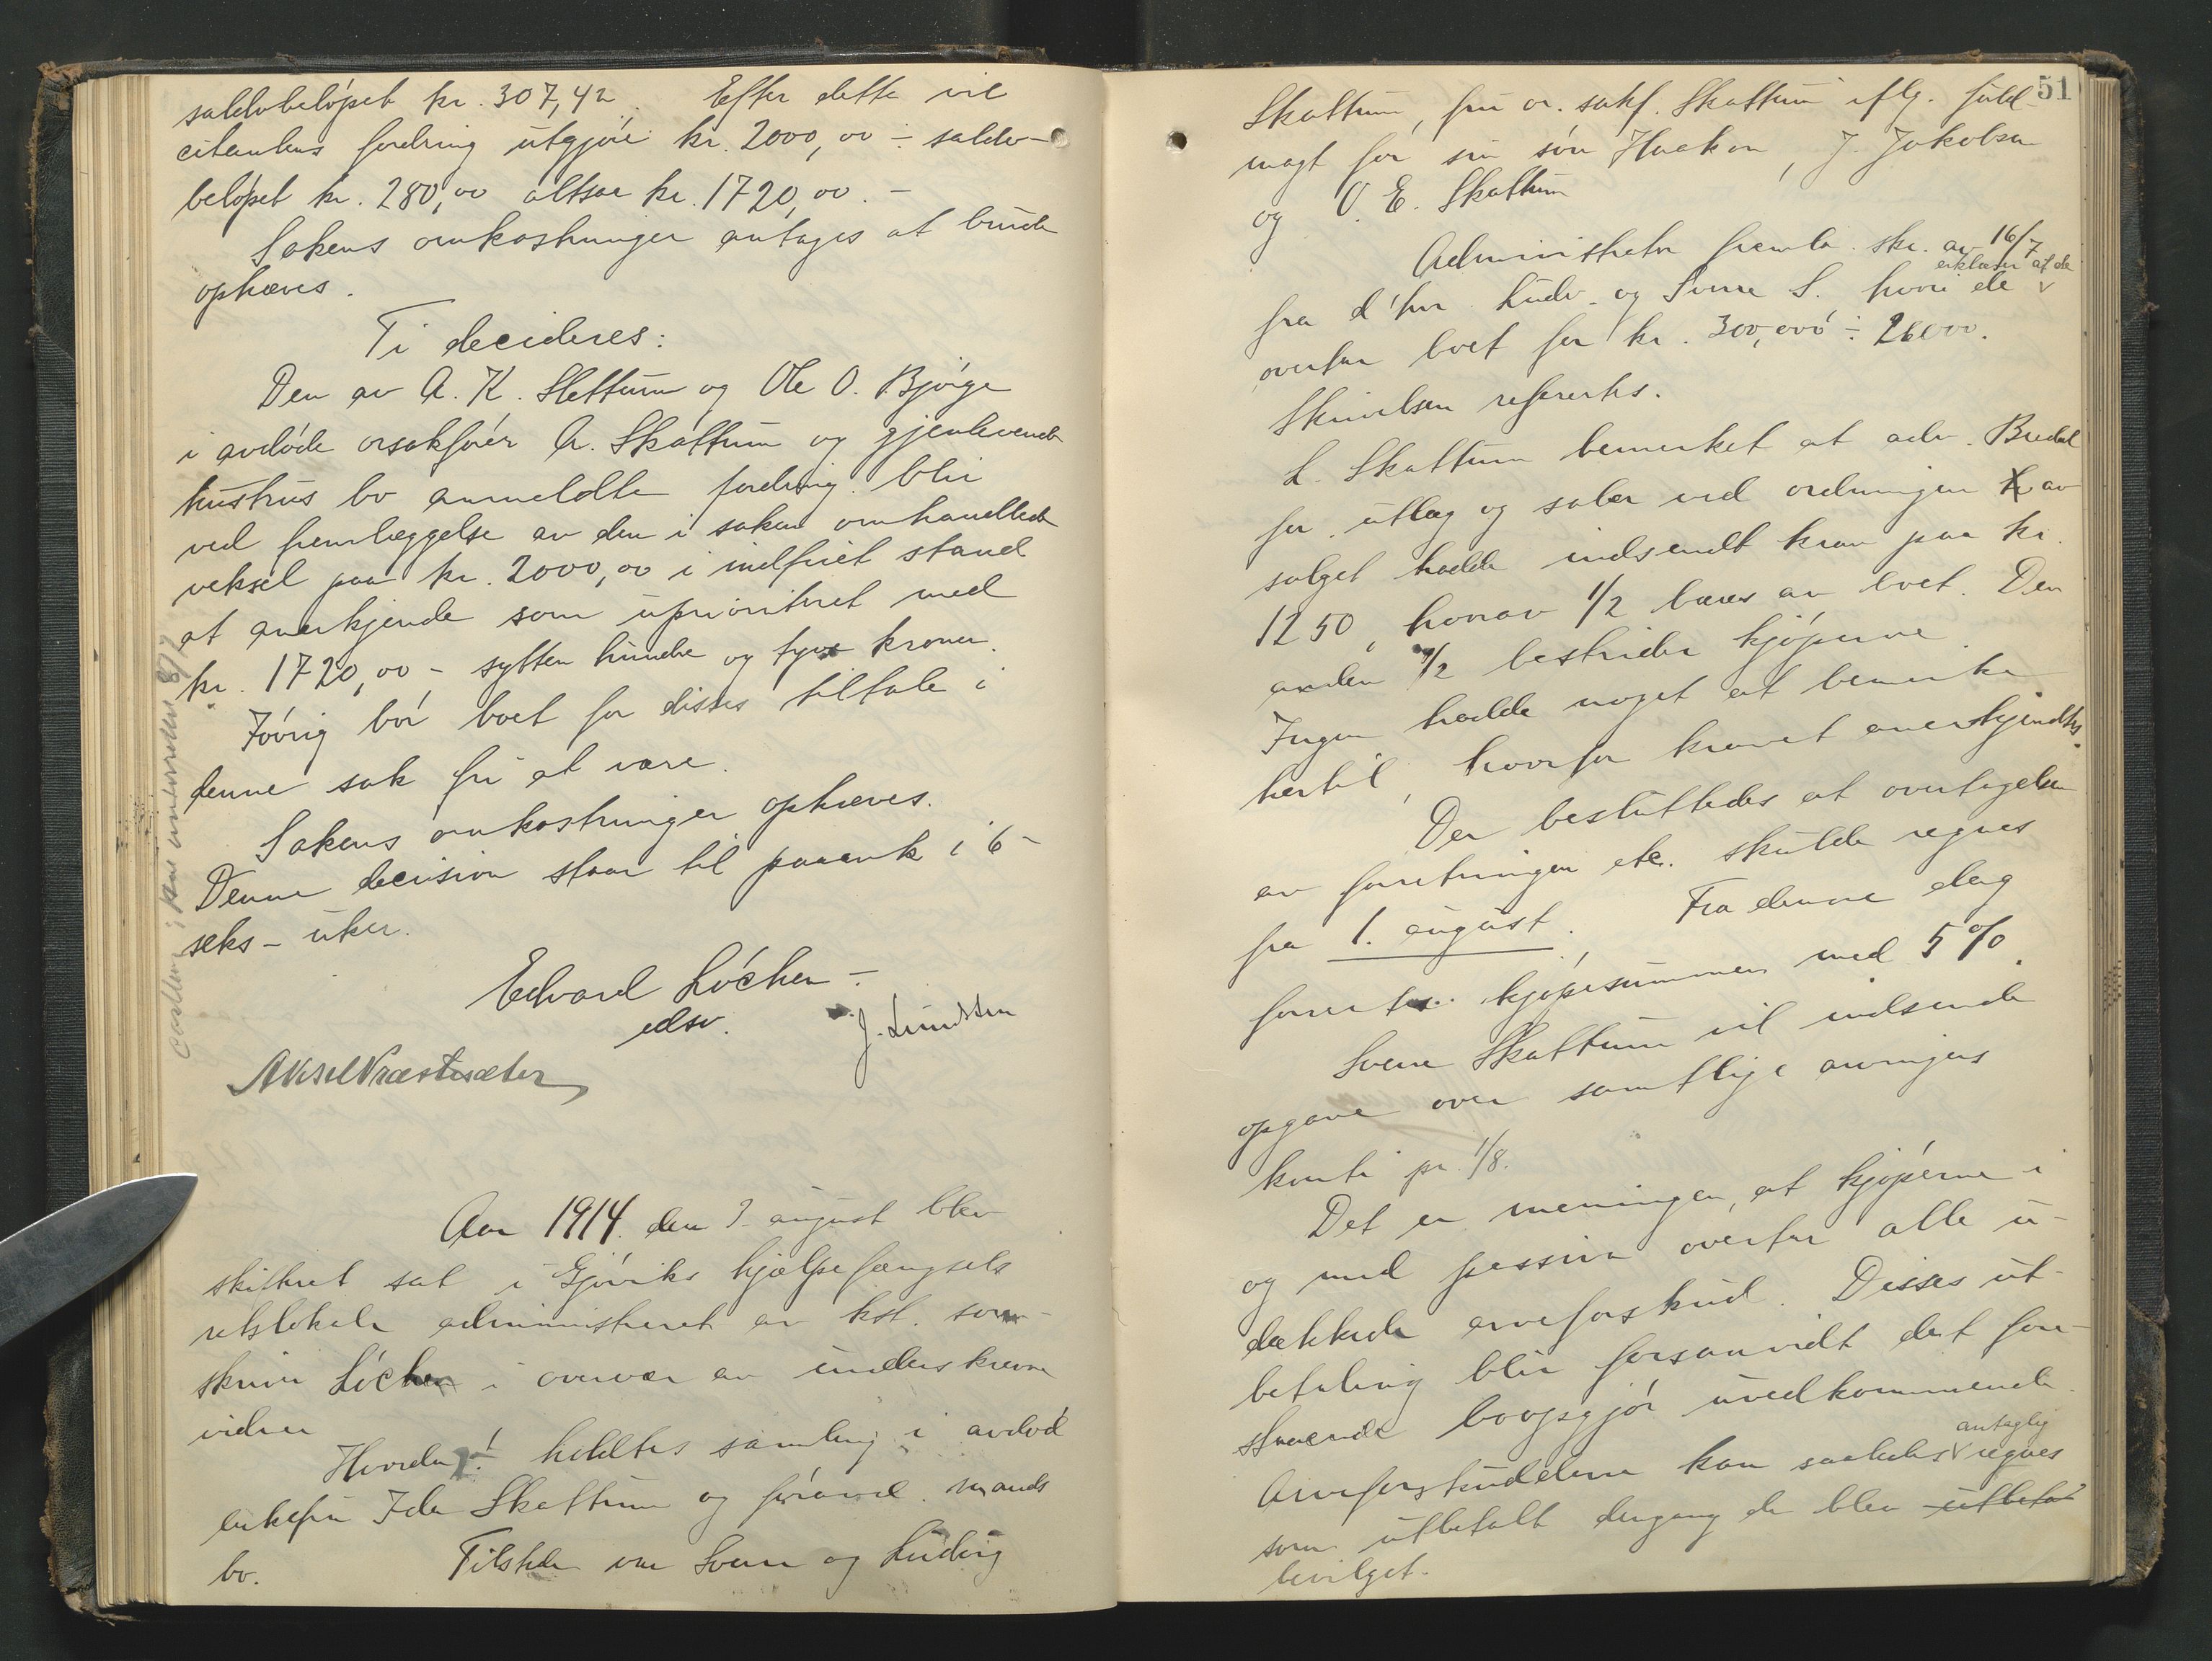 saldobeløpet kr. 307,42. Efter dette vil
citantens fordring utgjøre kr. 2000,00 ÷ saldo-
beløpet kr. 280,00 altsaa kr. 1720,00. -
Sakens omkostninger antages at burde
ophæves.
Ti decideres:
Den av A. K. Slettum og Ole O. Bjørge
i avdøde orsakfører A. Skattum og gjenlevende
hustrus bo anmeldte fordring blir
ved fremlæggelse av den i saken omhandlede
veksel paa kr. 2000,00 i indfriet stand
at anerkjende som uprioritert med
kr. 1720,00 - sytten hundre og tyve kroner.
Iøvrig bør boet for disses tiltale i
denne sak fri at være.
Sakens omkostninger ophæves.
Denne decision staar til paaank i 6-
seks- uker.
Edvard Löchen -
edsv.
J. Lundsten
Aksel Præstesæter
Aar 1914 den 3. august blev
skifteret sat i Gjøviks hjælpefængsels
retslokale administreret av kst. soren-
skriver Löchen i overvær av underskrevne
vidner
Hvorda! holdtes samling i avdød
enkefru Ida Skattum og føravd. mands
bo. Tilstede var Sverre og Ludvig
51
Skattum, fru or. sakf. Skattum iflg. fuld-
magt for sin søn Haakon, J. Jakobsen
og O. E. Skattum
Administrator fremla skr. av 16/7
erklærer at de
fra d'hrr. Ludv. og Sverre S. hvori de
overtar boet for kr. 300,000 ÷ 26000.
Skrivelsen refereertes.
L. Skattum bemerket at adv. Bredal
for utlæg og salær ved ordningen av
salget hadde indsendt krav paa kr.
1250, hvorav 1/2 bæres av boet. Den
anden 1/2 bestrider kjøperne
Ingen hadde noget at bemerke
hertil, hvorfor kravet anerkjendtes.
Der besluttedes at overtagelsen
av forretningen etc. skulde regnes
fra 1. august. Fra denne dag
forrentes kjøpesummen med 5 %.
Sverre Skattum vil indsende
opgave over samtlige arvingers
konti pr. 1/8.
Det er meningen, at kjøperne i
og med passiva overtar alle u-
dækkede arveforskud. Disses ut-
betaling blir forsaavidt det fore-
staaende boopgjør uvedkommende.
antagelig
Arveforskuddene kan saaledes regnes
som utbetalt dengang de blev utbetalt
bevilget.